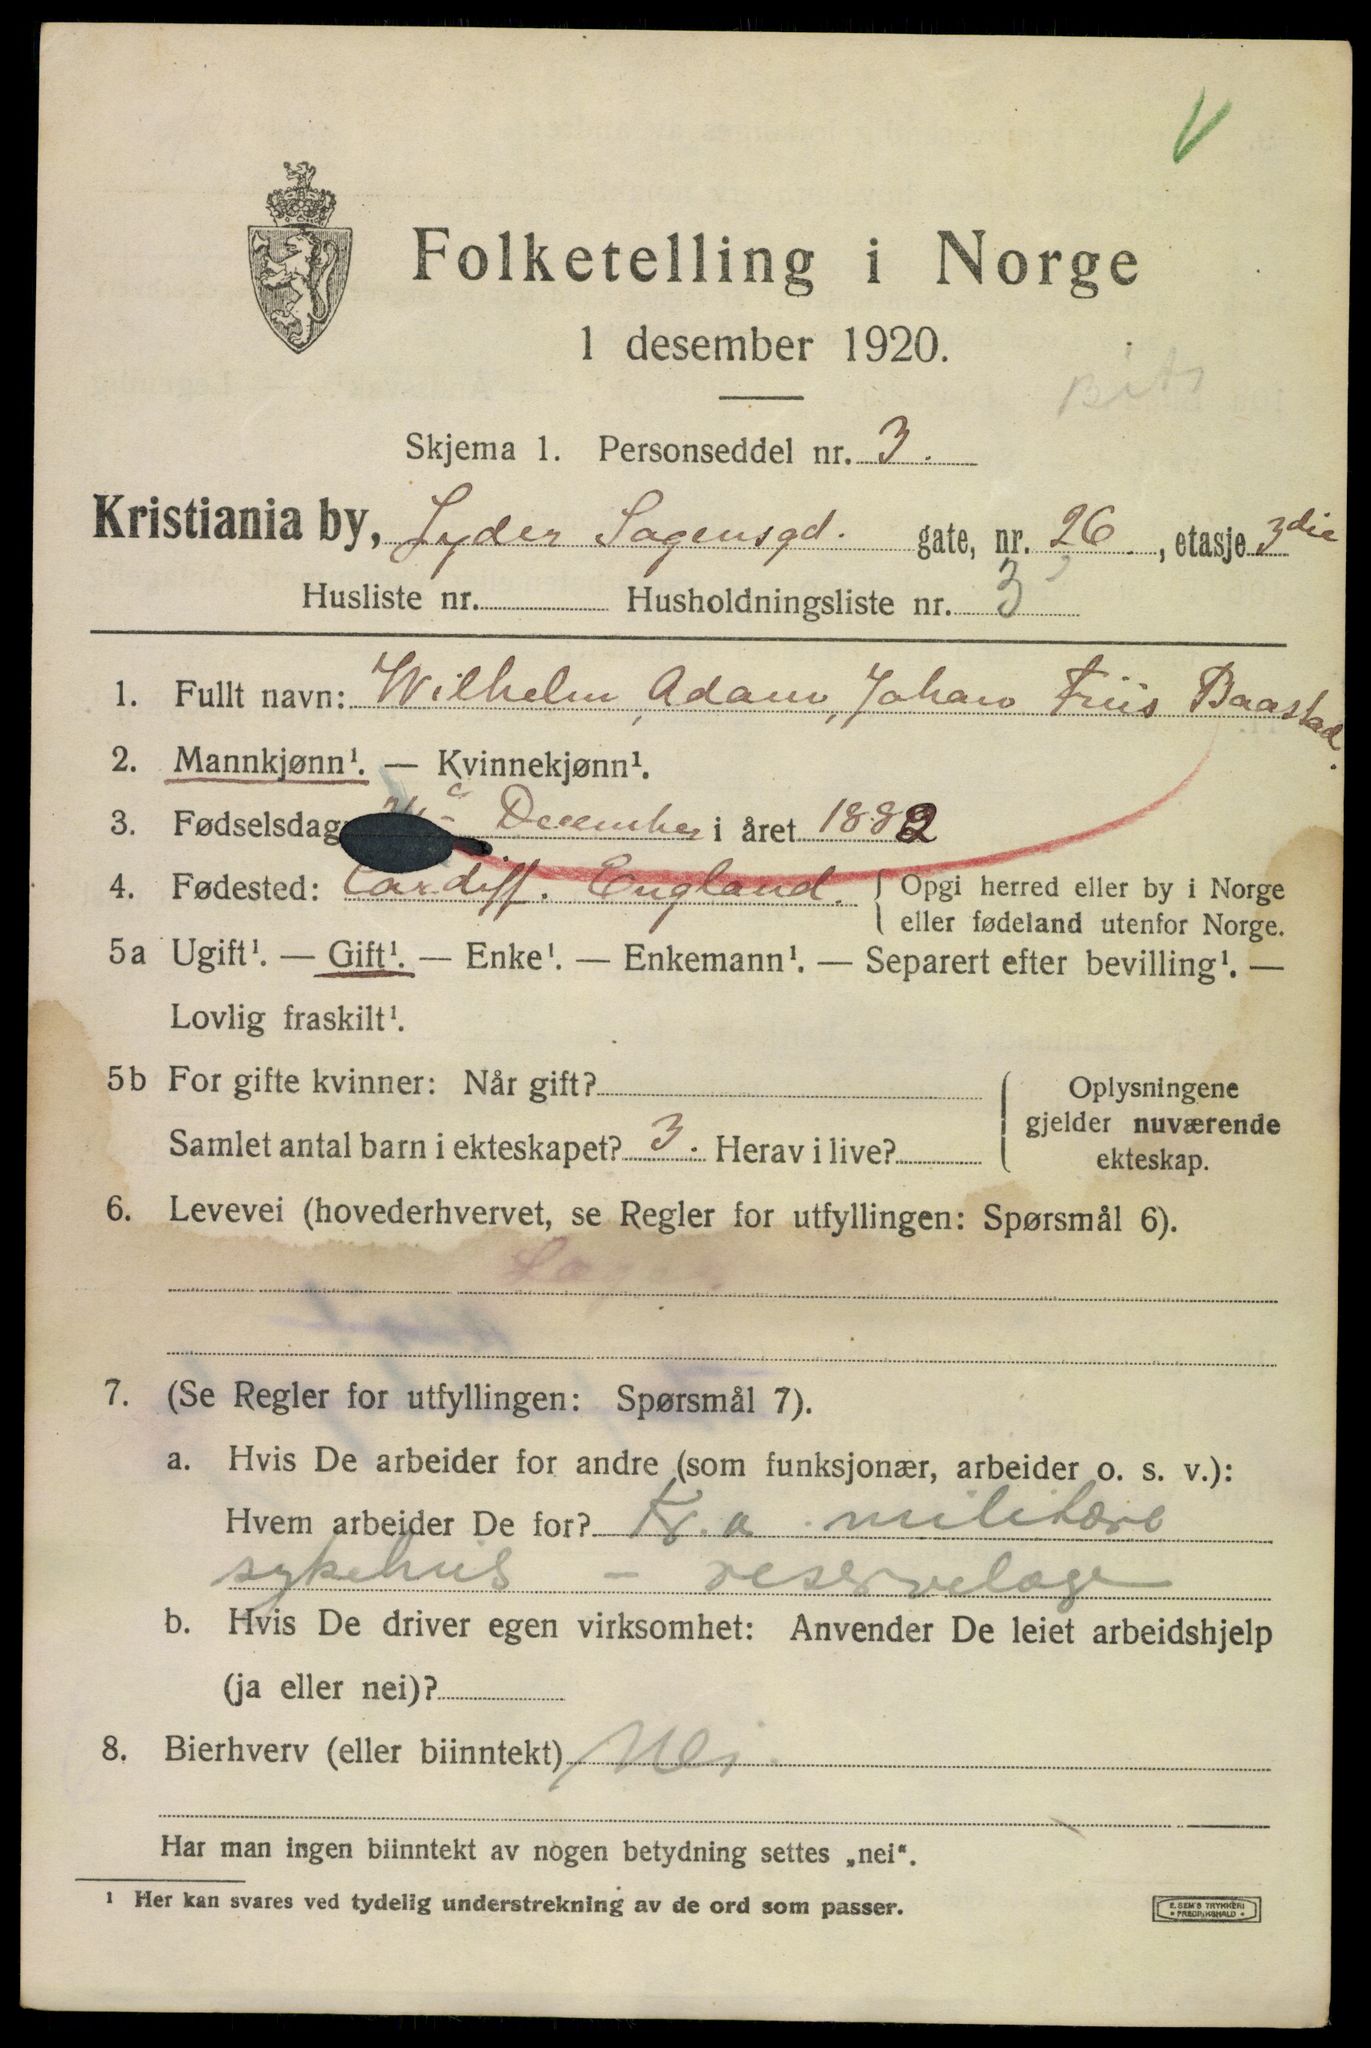 Folketelling i Norge
1 desember 1920.
Skjema 1. Personseddel nr. 3.
Kristiania by, Lyder Sagensgd. gate, nr. 26, etasje 3die
Husliste nr. Husholdningsliste nr. 3
1. Fullt navn: Wilhelm, Adam, Johan Friis Baastad.
2. Mannkjønn¹. — Kvinnekjønn¹.
3. Fødselsdag December i året 1882
4. Fødested: Cardiff. England. Opgi herred eller by i Norge
eller fødeland utenfor Norge.
5a Ugift¹. — Gift¹. — Enke¹. — Enkemann¹. — Separert efter bevilling¹. —
Lovlig fraskilt¹.
5b For gifte kvinner: Når gift?
Samlet antal barn i ekteskapet? 3. Herav i live?
Oplysningene
gjelder nuværende
ekteskap.
6. Levevei (hovederhvervet, se Regler for utfyllingen: Spørsmål 6).
7. (Se Regler for utfyllingen: Spørsmål 7).
a. Hvis De arbeider for andre (som funksjonær, arbeider o. s. v.):
Hvem arbeider De for? Kr.a militære
sykehus – reservelæge
b. Hvis De driver egen virksomhet: Anvender De leiet arbeidshjelp
(ja eller nei)?
8. Bierhverv (eller biinntekt) Nei.
Har man ingen biinntekt av nogen betydning settes „nei“.
¹ Her kan svares ved tydelig understrekning av de ord som passer.
E. SEM'S TRYKKERI
FREDRIKSHALD